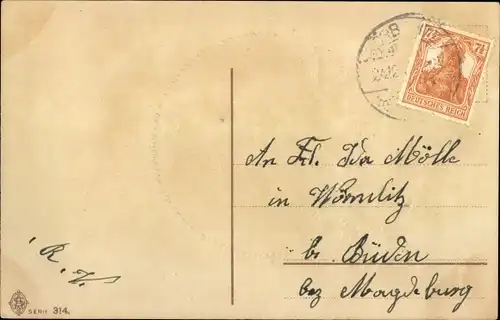 7½ 7½
DEUTSCHES REICH
An Frl. Ida Mölle
in Wörmlitz
b. Büden
bez Magdeburg
R. V.
SERIE 314.